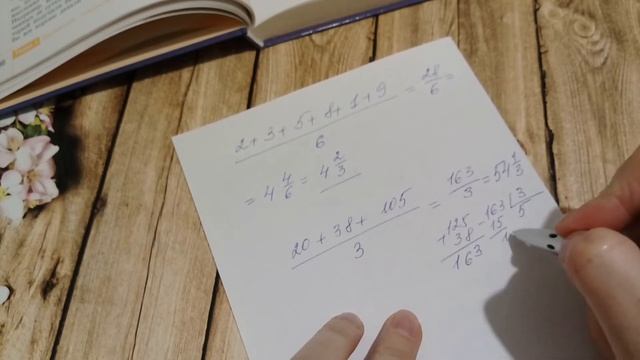 (2+3+5+8+1+9)/6 = 28/6 =
= 4 4/6 = 4 2/3
(20+38+105)/3 = 163/3 = 54 1/3
+125
38
163
-163 | 3
15 5
1